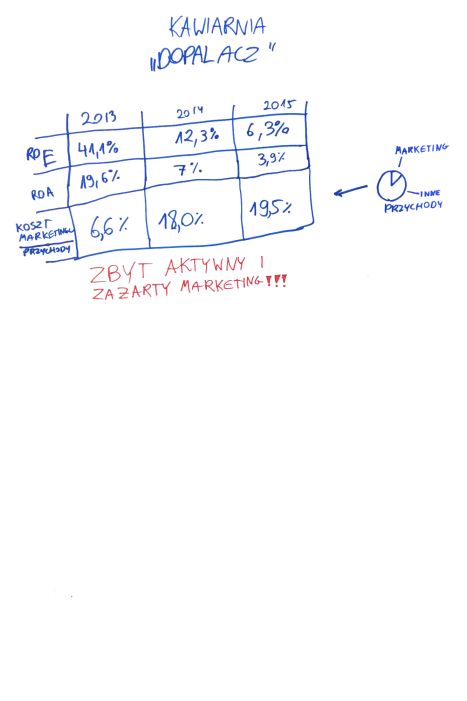 KAWIARNIA
„DOPALACZ"
2013 2014 2015
ROE 41,1% 12,3% 6,3%
ROA 19,6% 7% 3,9%
KOSZT MARKETINGU
PRZYCHODY
6,6% 18,0% 19,5%
MARKETING
INNE
PRZYCHODY
ZBYT AKTYWNY I
ZAŻARTY MARKETING!!!